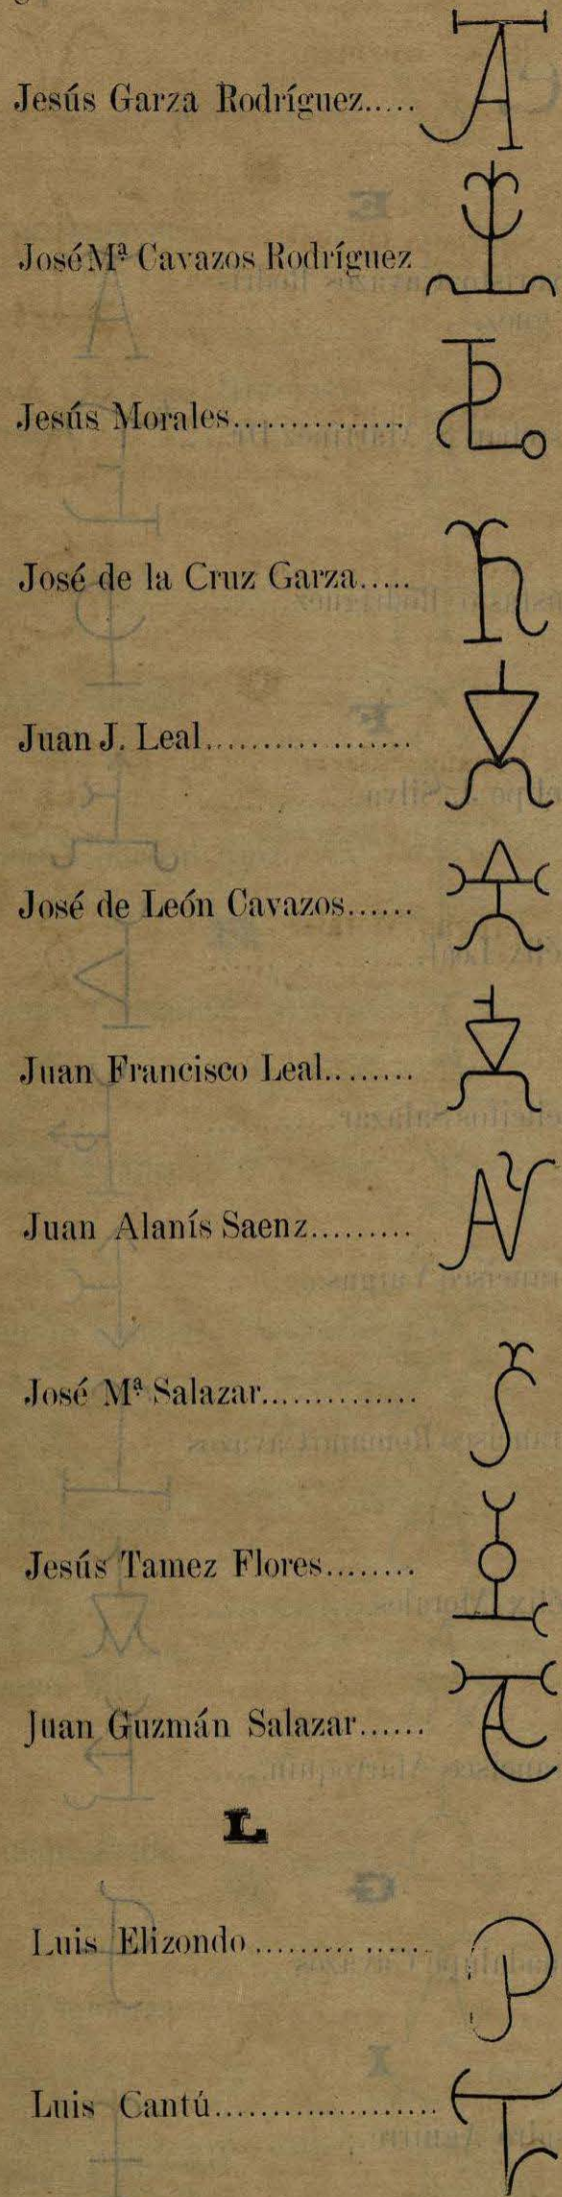 Jesús Garza Rodríguez.....
José Mª Cavazos Rodríguez
Jesús Morales................
José de la Cruz Garza.....
Juan J. Leal...................
José de León Cavazos......
Juan Francisco Leal........
Juan Alanís Saenz.........
José Mª Salazar..............
Jesús Tamez Flores........
Juan Guzmán Salazar......
L
Luis Elizondo ................
Luis Cantú.....................